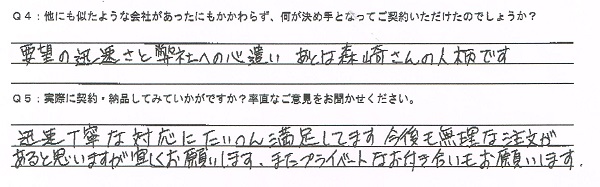 Q4：他にも似たような会社があったにもかかわらず、何が決め手となってご契約いただけたのでしょうか？
要望の迅速さと弊社への心遣い あとは森崎さんの人柄です
Q5：実際に契約・納品してみていかがですか？率直なご意見をお聞かせください。
迅速丁寧な対応にたいへん満足してます 今後も無理な注文が
あると思いますが宜しくお願いします、またプライベートなお付き合いもお願いします.